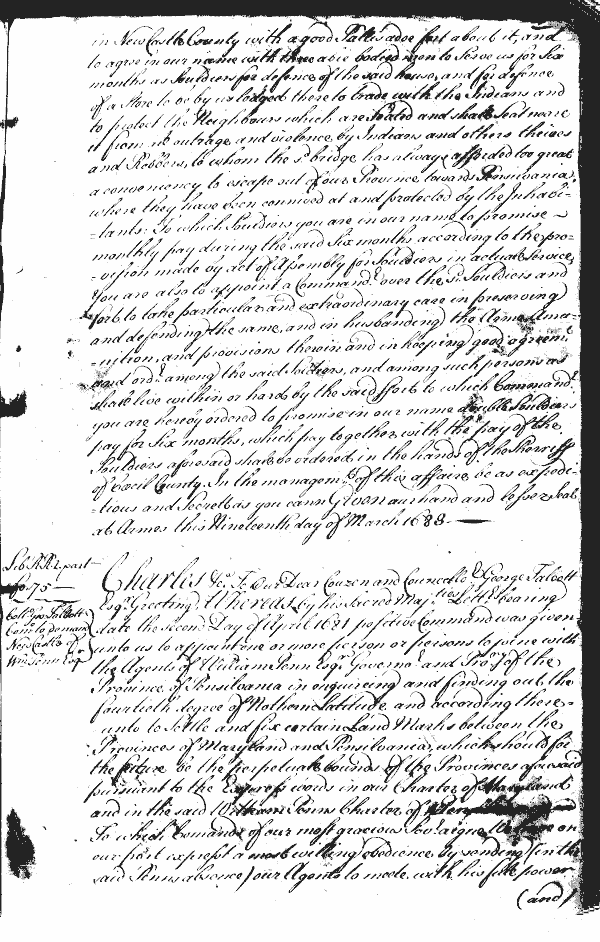 in New Castle County with a good Pallisadoe fort about it, and
to agree in our name with three able bodied men to Serve us for Six
months as Souldiers for defence of the said house, and for defence
of a Store to be by us lodged there to trade with the Indians and
to protect the Neighbours which are Seated and shall Seat neare
it from outrage and violence by Indians and others theives
and Robbers, to whom the sd bridge has always afforded too great
a conveniency to escape out of our Province towards Pensilvania,
where they have been connived at and protected by the Inhabi-
-tants: To which Souldiers you are in our name to promise
monthly pay during the said Six months according to the pro-
-vision made by act of Assembly for Souldiers in actual Service,
you are also to appoint a Command.r over the sd. Souldiers and
fort to take particular and extraordinary care in preserving
and defending the same, and in husbanding the Arms Ama-
-nition, and provisions therein and in keeping good agreem.t
and ord.r among the said Soldiers, and among such persons as
shall live within or hard by the said ffort to which Command.r
you are hereby ordered to promise in our name double Souldiers
pay for Six months, which pay together with the pay of the
Souldiers aforesaid shall be ordered in the hands of the Sherriff
of Cæcil County. In the managem.t of this affaire, be as expedi-
-tious and Secret as you cann Given our hand and lesser Seal
at Armes this Nineteenth day of March 1683.
Lib RR2. part
fo. 75
Coll. Geo Talbotts
Com.n to demand
New Castle of
Wm Penn Esq.r
Charles &c. To Our Dear Couzen and Councello.r George Talbott
Esq.r Greeting. Whereas by his Sacred Maj.ties Lett.rs bearing
date the Second Day of April 1681 positive Command was given
unto us to appoint one or more person or persons to joine with
the Agents of William Penn Esq.r Governo.r and Prop.ry of the
Province of Pensilvania in enquireing and finding out the
fourtieth degree of Nothern Latitude, and according there-
-unto to Settle and fix certain Land Marks between the
Provinces of Maryland and Pensilvania, which should for
the future be the perpetual bounds of the Provinces aforesaid
pursuant to the Express words in our Charter of Maryland
and in the said William Penns Charter of
To which Comands of our most gracious Soveraigne We have on
our part exprest a most willing obedience by sending (in the
said Penns absence) our Agents to meete with his full power
(and)